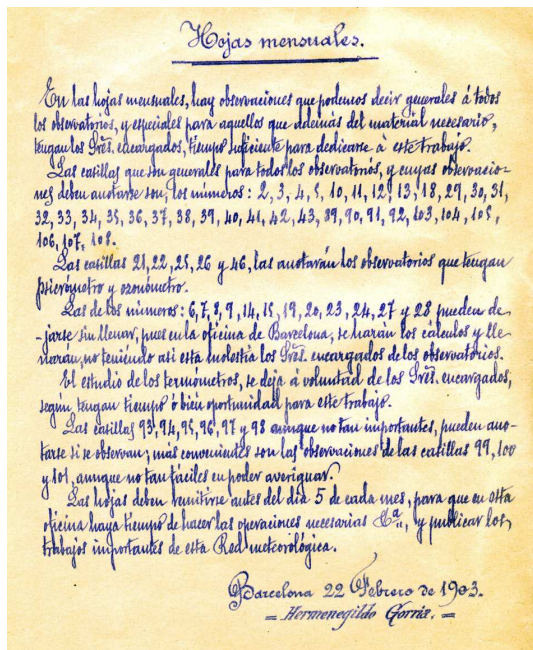 Hojas mensuales.
En las hojas mensuales, hay observaciones que podemos decir generales á todos
los observatorios, y especiales para aquellos que además del material necesario,
tengan los Srēs. encargados, tiempo suficiente para dedicarse á este trabajo.
Las casillas que son generales para todos los observatorios, y cuyas observacio-
nes deben anotarse son, los números: 2, 3, 4, 5, 10, 11, 12, 13, 18, 29, 30, 31,
32, 33, 34, 35, 36, 37, 38, 39, 40, 41, 42, 43, 89, 90, 91, 92, 103, 104, 105,
106, 107, 108.
Las casillas 21, 22, 25, 26 y 46, las anotarán los observatorios que tengan
psicrómetro y ozonómetro.
Las de los números: 6, 7, 8, 9, 14, 15, 19, 20, 23, 24, 27 y 28 pueden de-
-jarse sin llenar, pues en la oficina de Barcelona, se harán los cálculos y lle-
narán, no teniendo asi esta molestia los Srēs. encargados de los observatorios.
El estudio de los termómetros, se deja á voluntad de los Srēs. encargados,
según tengan tiempo ó bien oportunidad para este trabajo.
Las casillas 93, 94, 95, 96, 97 y 98 aunque no tan importantes, pueden ano-
tarse si se observan; más convenientes son las observaciones de las casillas 99, 100
y 101, aunque no tan fáciles en poder averiguar.
Las hojas deben remitirse antes del dia 5 de cada mes, para que en esta
oficina haya tiempo de hacer las operaciones necesarias &ª, y publicar los
trabajos importantes de esta Red meteorológica.
Barcelona 22 Febrero de 1903.
= Hermenegildo Gorria. =